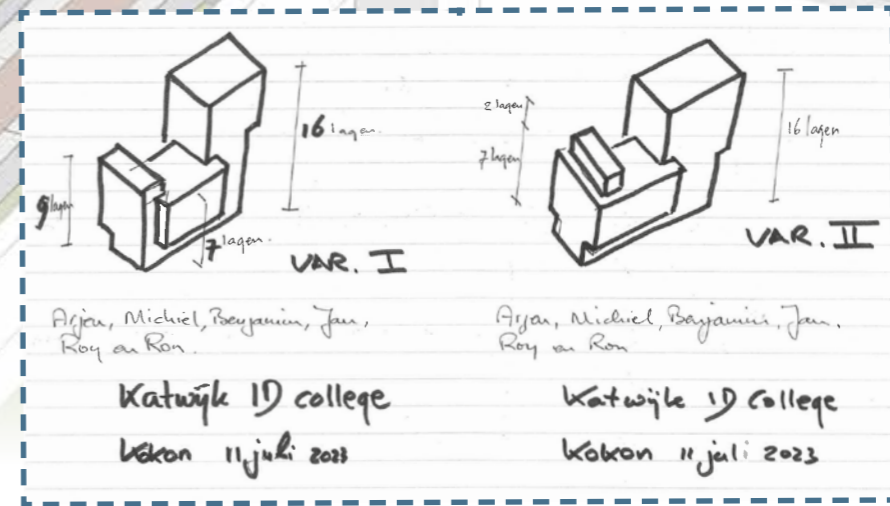 16 lagen.
9 lagen
7 lagen.
VAR. I
Arjen, Michiel, Benjamin, Jan,
Roy en Ron.
Katwijk ID college
Kokon 11 juli 2023
2 lagen
7 lagen
16 lagen
VAR. II
Arjen, Michiel, Benjamin, Jan.
Roy en Ron
Katwijk ID College
Kokon 11 juli 2023